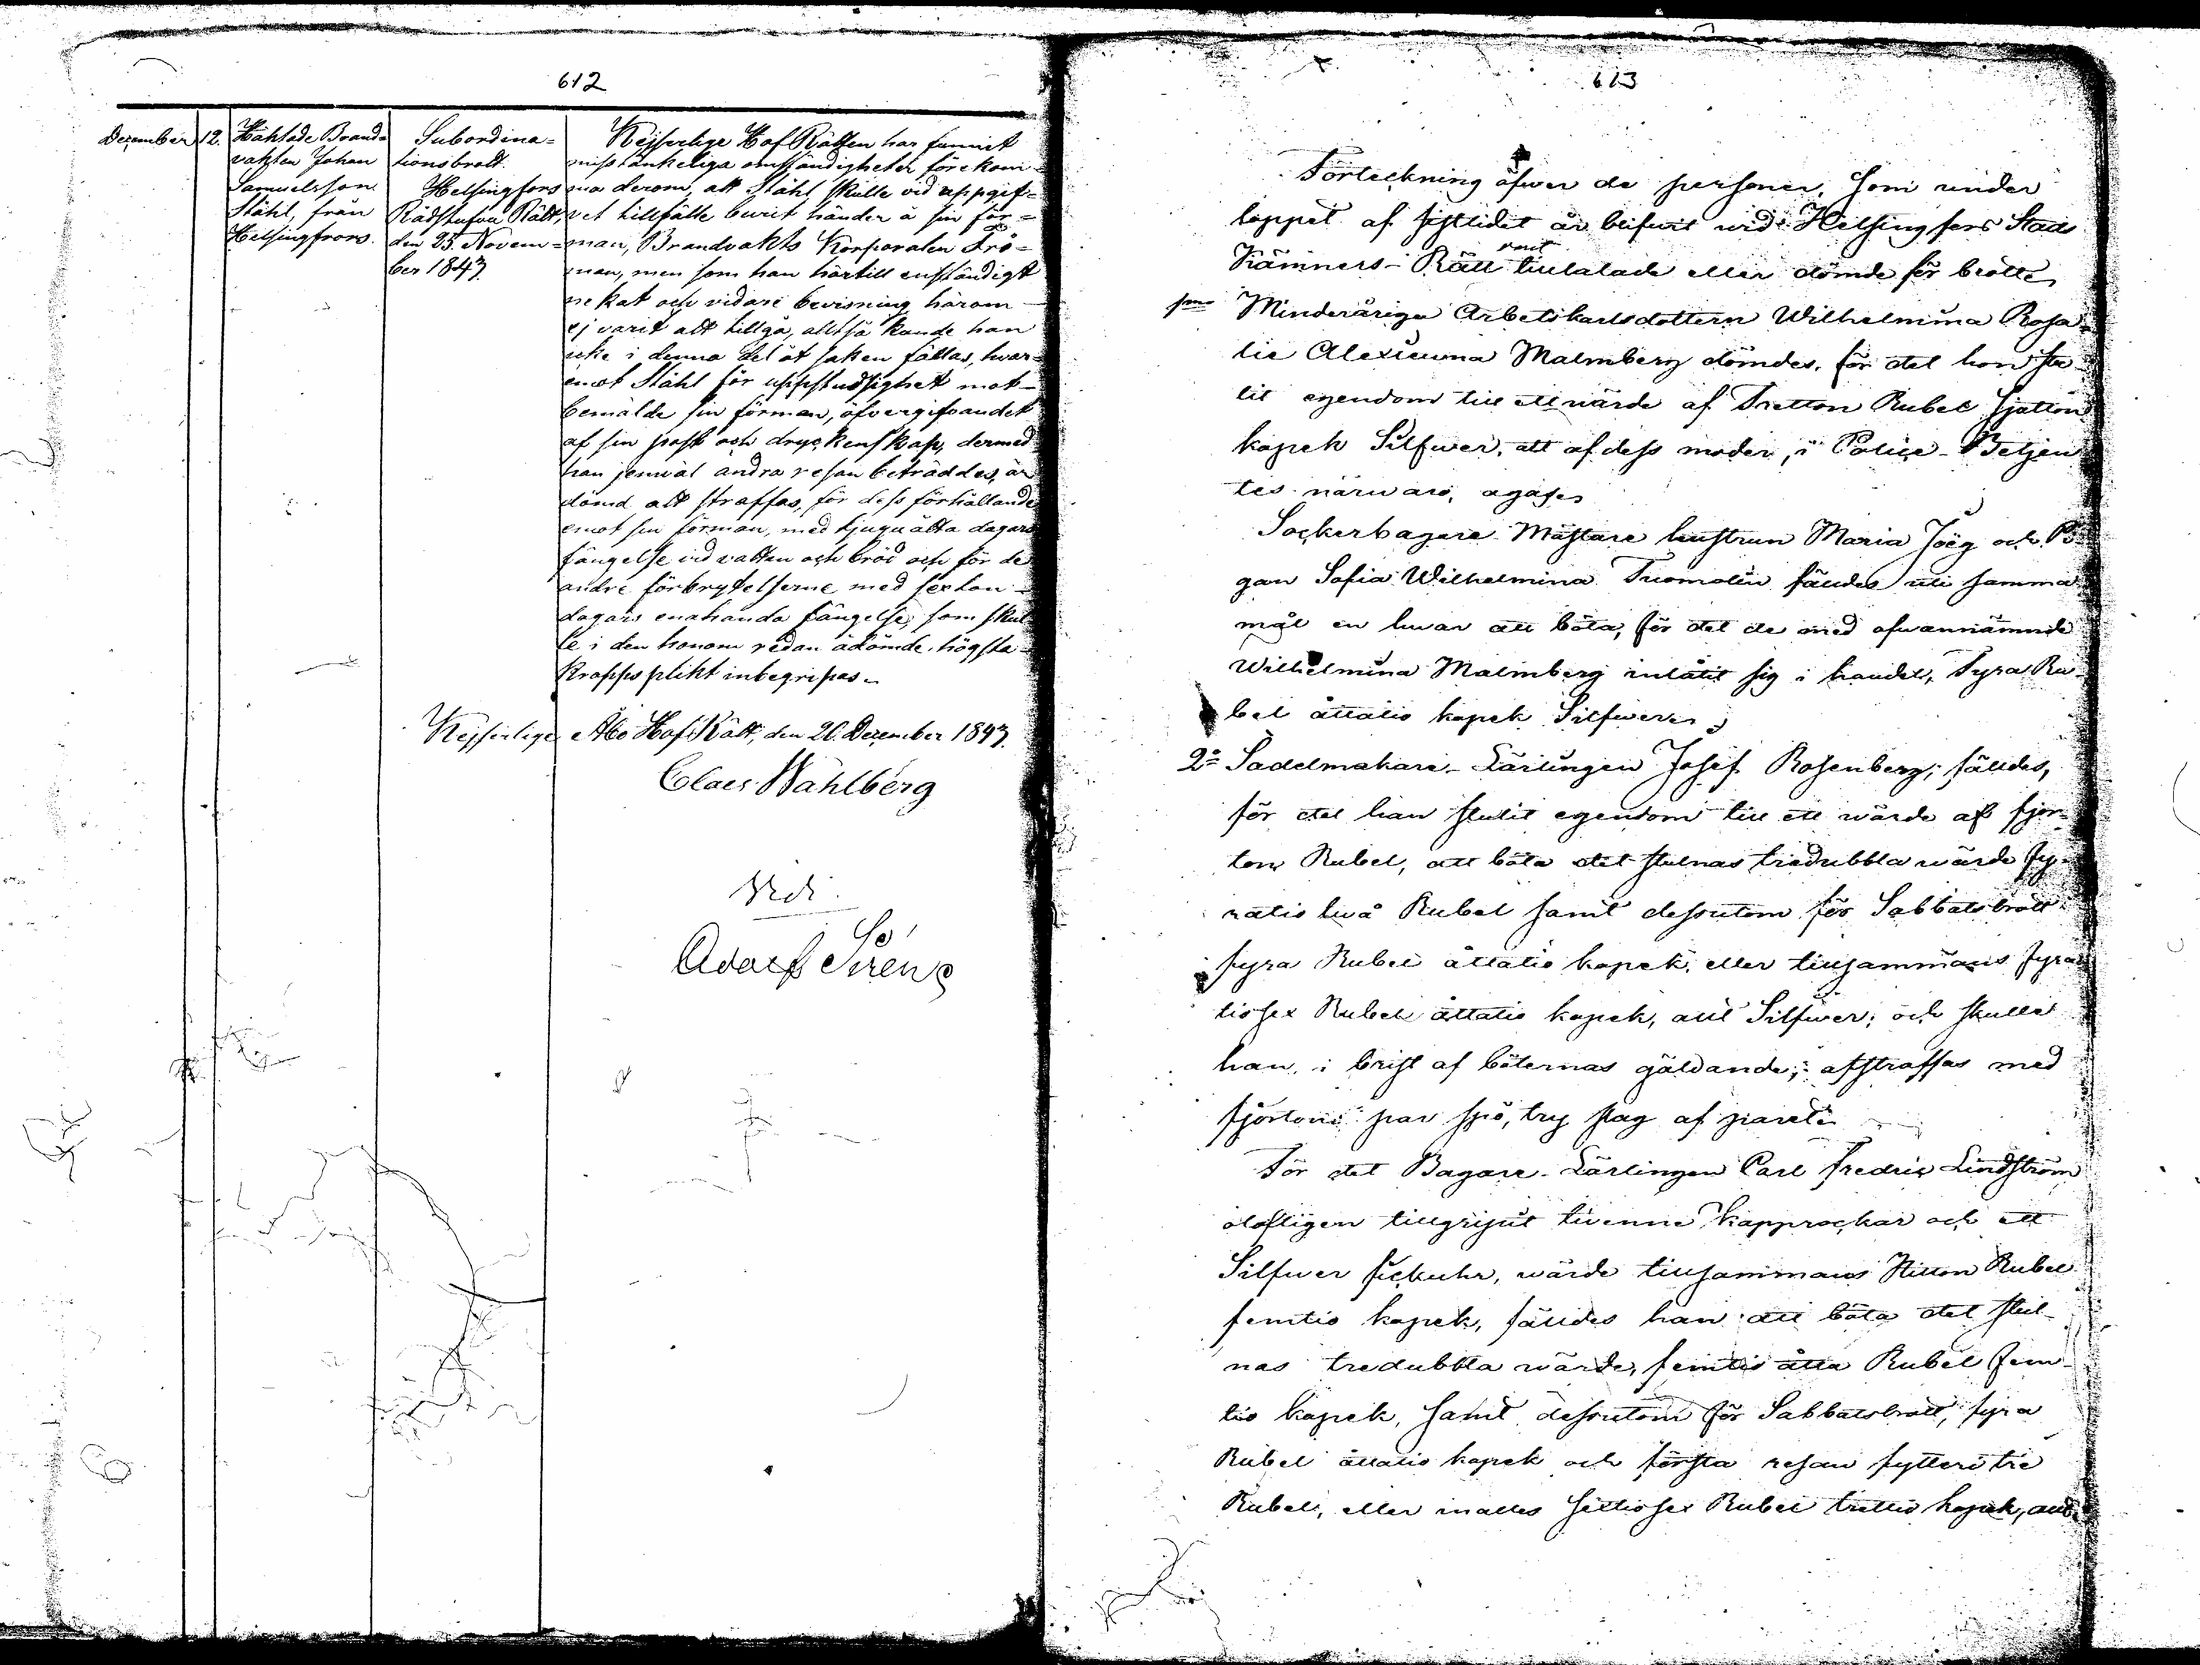 612
December
12.
Häktade Brand=
vakten Johan
Samuelsson
Ståhl, från
Helsingfors.
Subordina=
tionsbrott.
Helsingfors
Rådstufvu Rätt,
den 25. Novem=
ber 1847.
Kejserlige Hof Rätten har funnit
misstänkeliga omständigheter förekom=
ma derom, att Ståhl skulle vid uppgif=
vet tillfälle burit händer å sin för=
man, Brandvakts Korporalen Frö=
man, men som han härtill enständigt
nekat och vidare bevisning härom
ej varit att tillgå, alltså kunde han
icke i denna del åt saken fällas, hvar=
emot Ståhl för uppstudsighet mot=
bemälde sin förman, öfvergifvandet
af sin post och dryckenskap, dermed
han jemväl andra resan beträddes, är
dömd att straffas, för dess förhållande
emot sin förman, med tjuguåtta dagars
fängelse vid vatten och bröd och för de
andre förbrytelserne med sexton
dagars enahanda fängelse, som skul
le i den honom redan ådömde högsta
kroppsplikt inbegripas.
Kejserlige Åbo Hof Rätt, den 20. December 1847.
Claes Wahlberg
Vidi
Adolf Sirenc
613
Förteckning öfwer de personer, som under
loppet af sistlidet år blifwit wid Helsingfors Stads
Kämners-Rätt tilltalade eller dömde för brott
Minderåriga Arbetskarlsdottern Wilhelmina Rosa=
lie Alexiewna Malmberg dömdes, för det hon stu
lit egendom till ett wärde af Tretton Rubel sjutton
kopek Silfwer, att af dess moder, i Police-Betjen
tes närwaro, agas
Sockerbagare Mästare hustrun Maria Jöeg och Pi
gan Sofia Wilhelmina Tuomolin fälldes uti samma
mål en hwar att böta, för det de med ofwannämnde
Wilhelmina Malmberg inlåtit sig i handel, Fyra Ru=
bel åttatio kopek Silfwer
2o Sadelmakare-Lärlingen Josef Rosenberg, fälldes,
för det han stulit egendom till ett wärde af fjor=
ton Rubel, att böta det stulnas tredubbla wärde fy=
ratio två Rubel samt dessutom för Sabbatsbrott
fyra Rubel åttatio kopek, eller tillsammans fyra
tiosex Rubel åttatio kopek, allt Silfwer; och skulle
han, i brist af böternas gäldande, afstraffas med
fjorton par spö, try slag af paret
För det Bagare-Lärlingen Carl Fredric Lindström
olofligen tillgripit tvenne kapprockar och ett
Silfwer fickuhr, wärde tillsammans Nitton Rubel
femtio kopek, fälldes han att böta det stul=
nas tredubbla wärde, femtio åtta Rubel fem=
tio kopek, samt dessutom för Sabbatsbrott, fyra
Rubel åttatio kopek och första resan fylleri tre
Rubel, eller inalles sextiosex Rubel trettio kopek,